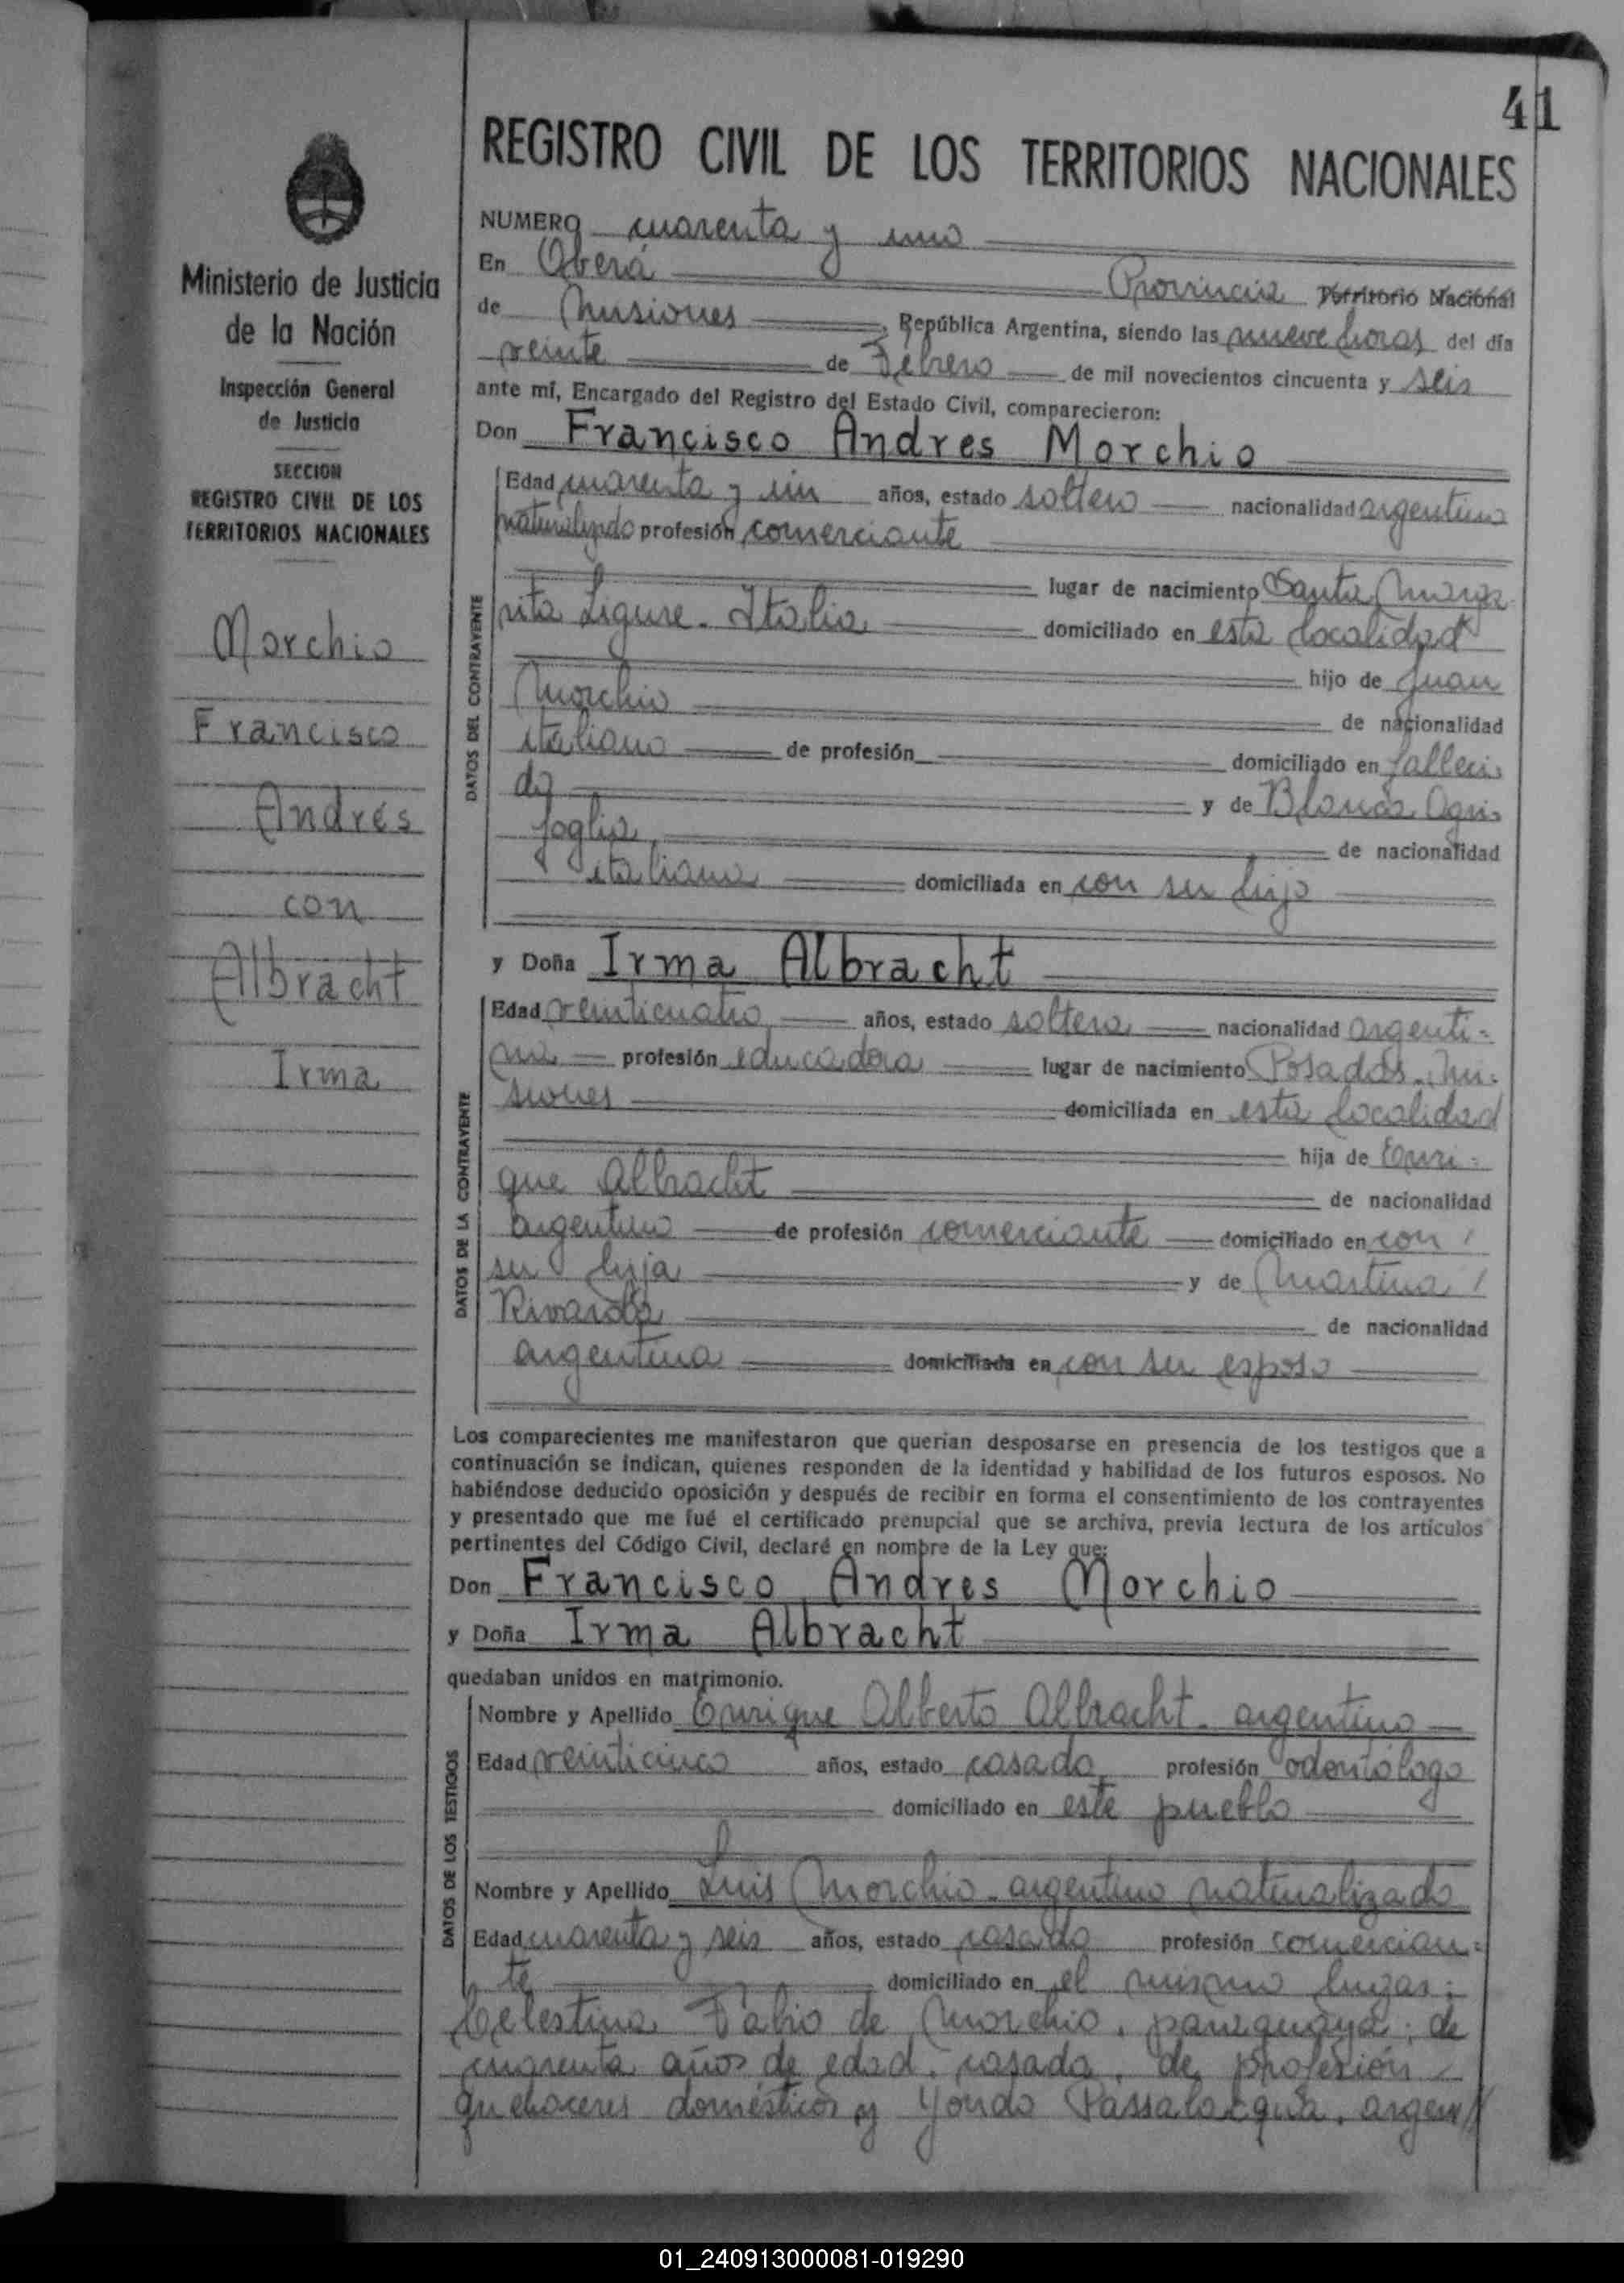 41
REGISTRO CIVIL DE LOS TERRITORIOS NACIONALES
Ministerio de Justicia
de la Nación
Inspección General
de Justicia
SECCION
REGISTRO CIVIL DE LOS
TERRITORIOS NACIONALES
Morchio
Francisco
Andrés
con
Albracht
Irma
NUMERO cuarenta y uno
En Oberá Provincia Territorio Nacional
de Misiones, República Argentina, siendo las nueve horas del día
veinte de Febrero de mil novecientos cincuenta y seis
ante mí, Encargado del Registro del Estado Civil, comparecieron:
Don Francisco Andres Morchio
DATOS DEL CONTRAYENTE
Edad cuarenta y un años, estado soltero nacionalidad argentino
naturalizado profesión comerciante
lugar de nacimiento Santa Marga-
rita Ligure - Italia domiciliado en esta localidad
hijo de Juan
Morchio de nacionalidad
italiano de profesión domiciliado en falleci-
do y de Blanca Agri-
foglio de nacionalidad
italiana domiciliada en con su hijo
y Doña Irma Albracht
DATOS DE LA CONTRAYENTE
Edad veinticuatro años, estado soltera nacionalidad argenti-
na profesión educadora lugar de nacimiento Posadas - Mi-
siones domiciliada en esta localidad
hija de Enri-
que Albracht de nacionalidad
argentino de profesión comerciante domiciliado en con
su hija y de Martina
Rivarola de nacionalidad
argentina domiciliada en con su esposo
Los comparecientes me manifestaron que querían desposarse en presencia de los testigos que a
continuación se indican, quienes responden de la identidad y habilidad de los futuros esposos. No
habiéndose deducido oposición y después de recibir en forma el consentimiento de los contrayentes
y presentado que me fué el certificado prenupcial que se archiva, previa lectura de los artículos
pertinentes del Código Civil, declaré en nombre de la Ley que:
Don Francisco Andres Morchio
y Doña Irma Albracht
quedaban unidos en matrimonio.
DATOS DE LOS TESTIGOS
Nombre y Apellido Enrique Alberto Albracht - argentino
Edad veinticinco años, estado casado profesión odontólogo
domiciliado en este pueblo
Nombre y Apellido Luis Morchio - argentino naturalizado
Edad cuarenta y seis años, estado casado profesión comercian-
te domiciliado en el mismo lugar;
Celestina Fabio de Morchio, paraguaya, de
cuarenta años de edad, casada, de profesión
quehaceres domésticos y Yondo Passalacqua, argen//
01_240913000081-019290